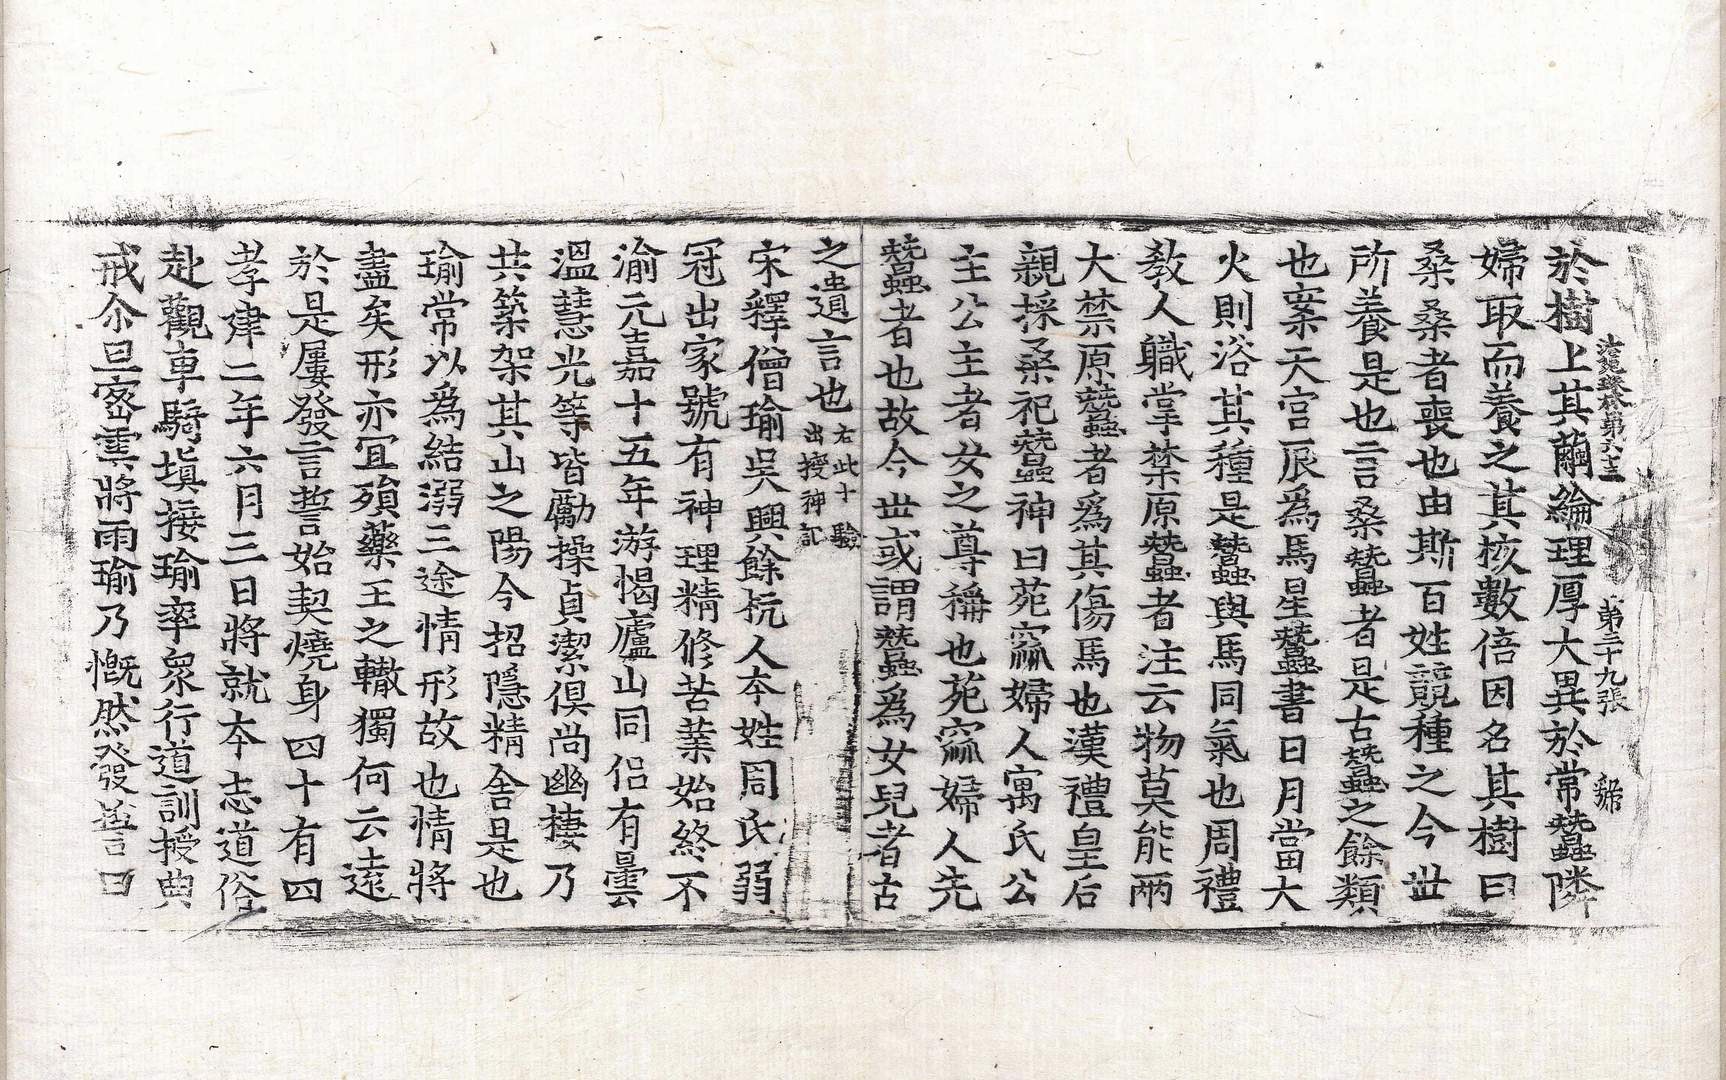 法苑珠林第六十三 第三十九張 㢧
於樹上其繭綸理厚大異於常蠶隣
婦取而養之其核數倍因名其樹曰
桑桑者喪也由斯百姓競種之今世
所養是也言桑蠶者是古蠶之餘類
也案天官辰爲馬星蠶書曰月當大
火則浴其種是蠶與馬同氣也周禮
敎人職掌禁原蠶者注云物莫能兩
大禁原蠶者爲其傷馬也漢禮皇后
親採桑祀蠶神曰苑窳婦人寓氏公
主公主者女之尊稱也苑窳婦人先
蠶者也故今世或謂蠶爲女兒者古
之遺言也右此十驗出授神記
宋釋僧瑜吳興餘杭人本姓周氏弱
冠出家號有神理精修苦業始終不
渝元嘉十五年游憩廬山同侣有曇
溫慧光等皆勵操貞潔俱尚幽棲乃
共築架其山之陽今招隱精舍是也
瑜常以爲結溺三途情形故也情將
盡矣形亦冝殞藥王之轍獨何云遠
於是屢發言誓始契燒身四十有四
孝建二年六月三日將就本志道俗
赴觀車騎塡接瑜率衆行道訓授典
戒尒旦密雲將雨瑜乃慨然發誓曰